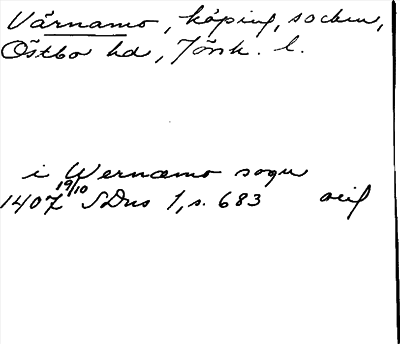 Värnamo, köping, socken,
Östbo hd, Jönk. l.
i Wernæmo sogn
1407 19/10 SDns 1, s. 683 avs